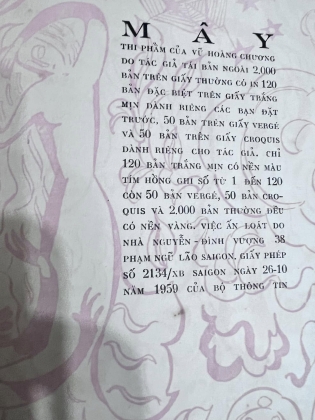 MÂY
THI PHẨM CỦA VŨ HOÀNG CHƯƠNG
DO TÁC GIẢ TÁI BẢN NGOÀI 2.000
BẢN TRÊN GIẤY THƯỜNG CÓ IN 120
BẢN ĐẶC BIỆT TRÊN GIẤY TRẮNG
MỊN DÀNH RIÊNG CÁC BẠN ĐẶT
TRƯỚC, 50 BẢN TRÊN GIẤY VERGÉ
VÀ 50 BẢN TRÊN GIẤY CROQUIS
DÀNH RIÊNG CHO TÁC GIẢ. CHỈ
120 BẢN TRẮNG MỊN CÓ NỀN MÀU
TÍM HỒNG GHI SỐ TỪ 1 ĐẾN 120
CÒN 50 BẢN VERGÉ, 50 BẢN CRO-
QUIS VÀ 2.000 BẢN THƯỜNG ĐỀU
CÓ NỀN VÀNG. VIỆC ẤN LOÁT DO
NHÀ NGUYỄN-ĐÌNH VƯỢNG 38
PHẠM NGŨ LÃO SAIGON. GIẤY PHÉP
SỐ 2134/XB SAIGON NGÀY 26-10
NĂM 1959 CỦA BỘ THÔNG TIN